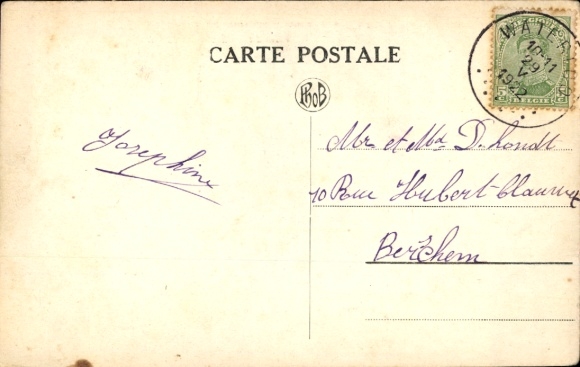 CARTE POSTALE
PhoB
WATERLOO
10-11
29
V
1922
BELGIE
Josephine
Mr et Ma D.hondt
70 Rue Hubert
Berchem